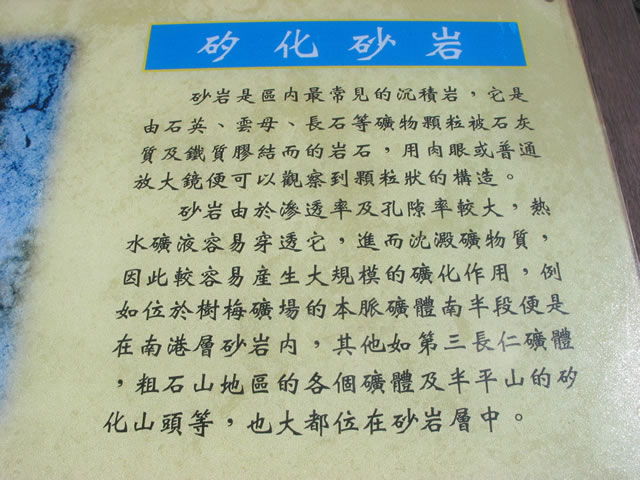 矽化砂岩
砂岩是區內最常見的沉積岩，它是
由石英、雲母、長石等礦物顆粒被石灰
質及鐵質膠結而的岩石，用肉眼或普通
放大鏡便可以觀察到顆粒狀的構造。
砂岩由於滲透率及孔隙率較大，熱
水礦液容易穿透它，進而沈澱礦物質，
因此較容易產生大規模的礦化作用，例
如位於樹梅礦場的本脈礦體南半段便是
在南港層砂岩內，其他如第三長仁礦體
，粗石山地區的各個礦體及半平山的矽
化山頭等，也大都位在砂岩層中。